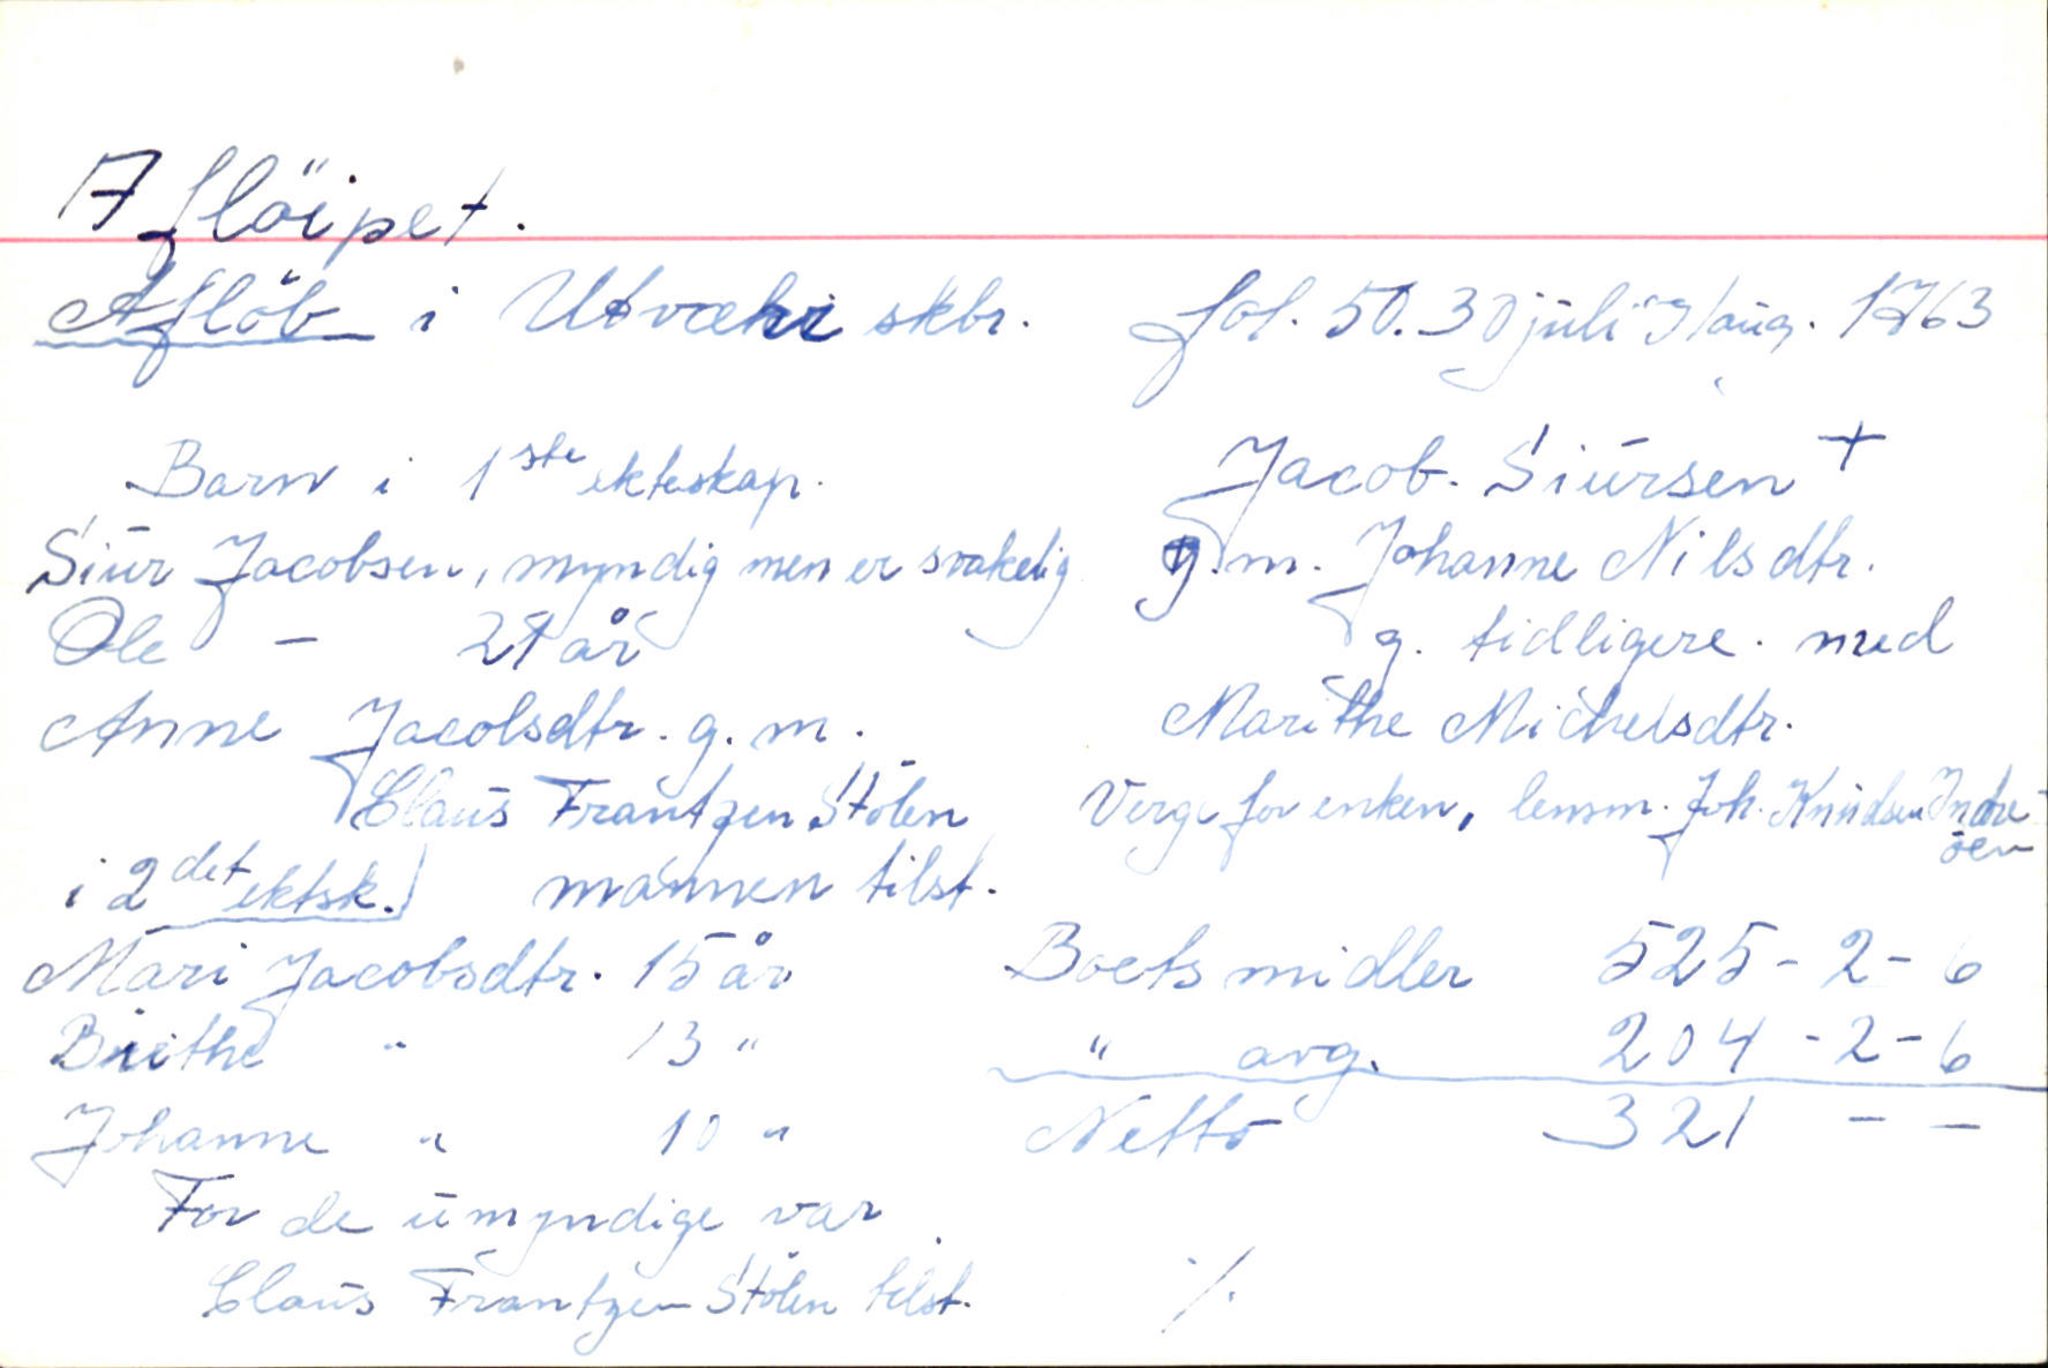 Aflöipet.
Aflöb i Utvækri skbr. fol. 50. 30 juli 9/aug. 1763
Barn i 1ste ekteskap.
Siur Jacobsen, myndig men er svakelig
Ole - 21 år
Anne Jacobsdtr. g. m.
Claus Frantzen Stölen
mannen tilst.
i 2det ektsk.
Mari Jacobsdtr. 15 år
Brithe " 13 "
Johanne " 10 "
For de umyndige var
Claus Frantzen Stölen tilst.
Jacob Siursen +
g. m. Johanne Nilsdtr.
g. tidligere med
Marithe Michelsdtr.
Verge for enken, lensm. Joh. Knudsen Indre-
öen
Boets midler 525 - 2 - 6
" avg. 204 - 2 - 6
Netto 321 - -
./.